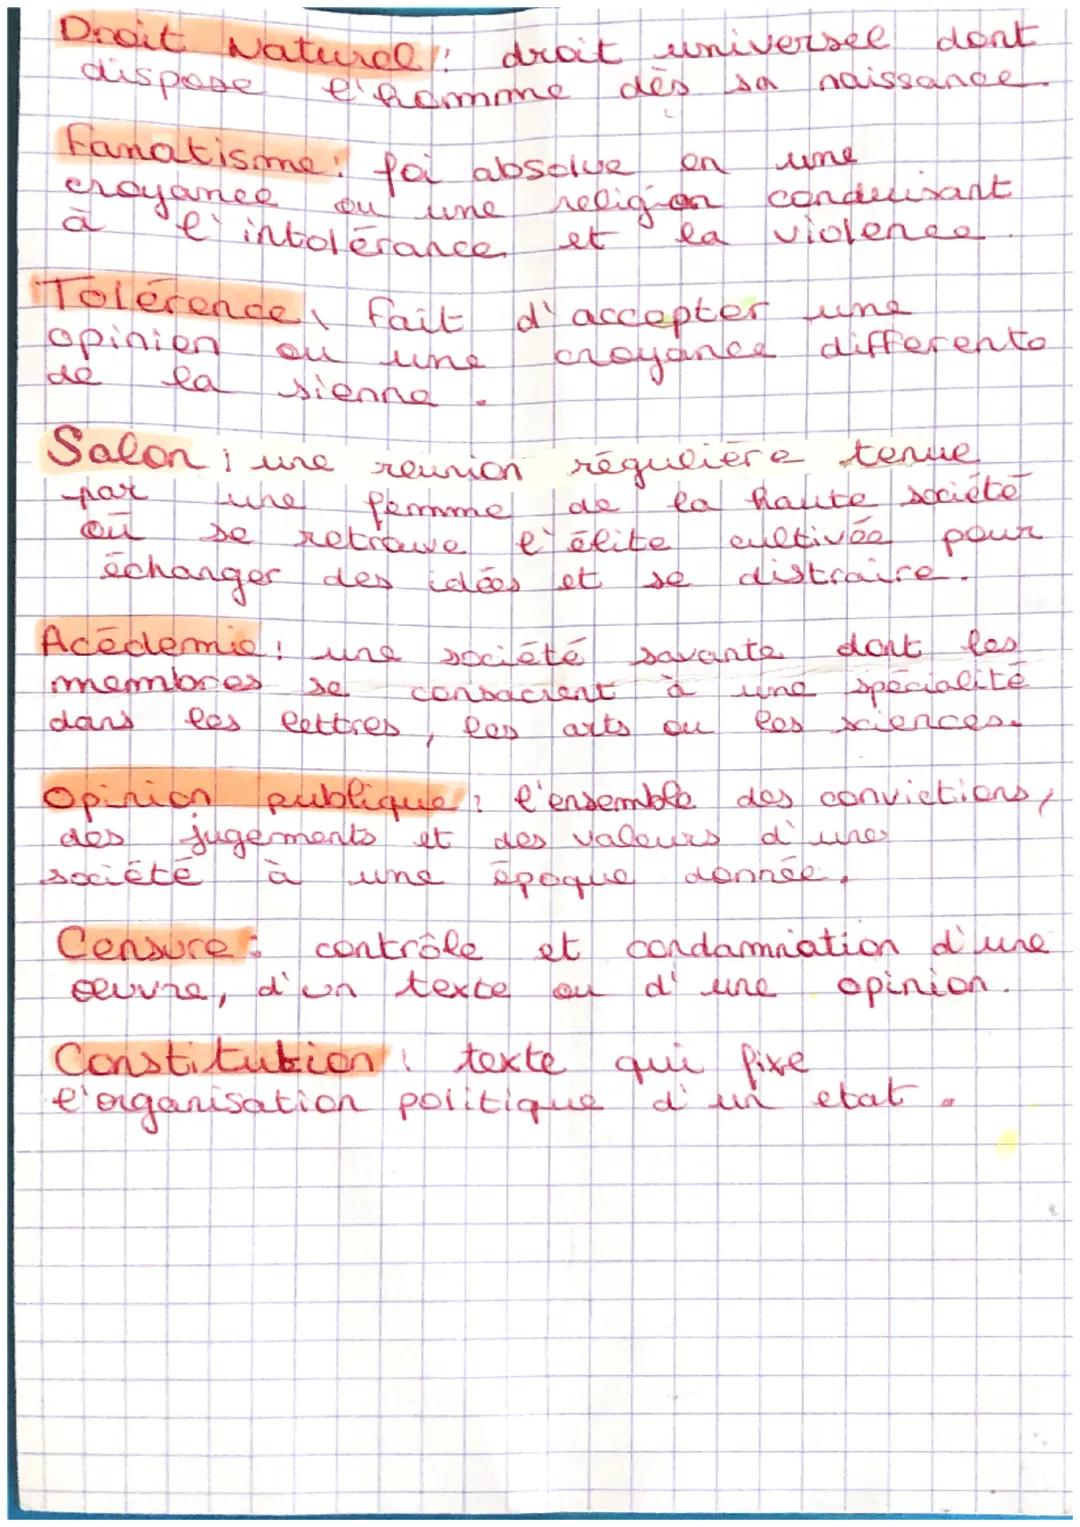 Droit Naturel : droit universel dont
dispose l'homme dès sa naissance.
Fanatisme : foi absolue en une
croyance ou une religion conduisant
à l'intolérance et la violence.
Tolérence : fait d'accepter une
opinion ou une croyance differente
de la sienne.
Salon : une reunion régulière tenue
par une femme de la haute société
où se retrouve l'élite cultivée pour
échanger des idées et se distraire.
Acédemie : une société savante dont les
membres se consacrent à une spécialité
dans les lettres, les arts ou les sciences.
Opinion publique : l'ensemble des convictions,
des jugements et des valeurs d'une
société à une époque donnée.
Censure : contrôle et condamnation d'une
œuvre, d'un texte ou d'une opinion.
Constitution : texte qui fixe
l'organisation politique d'un etat.